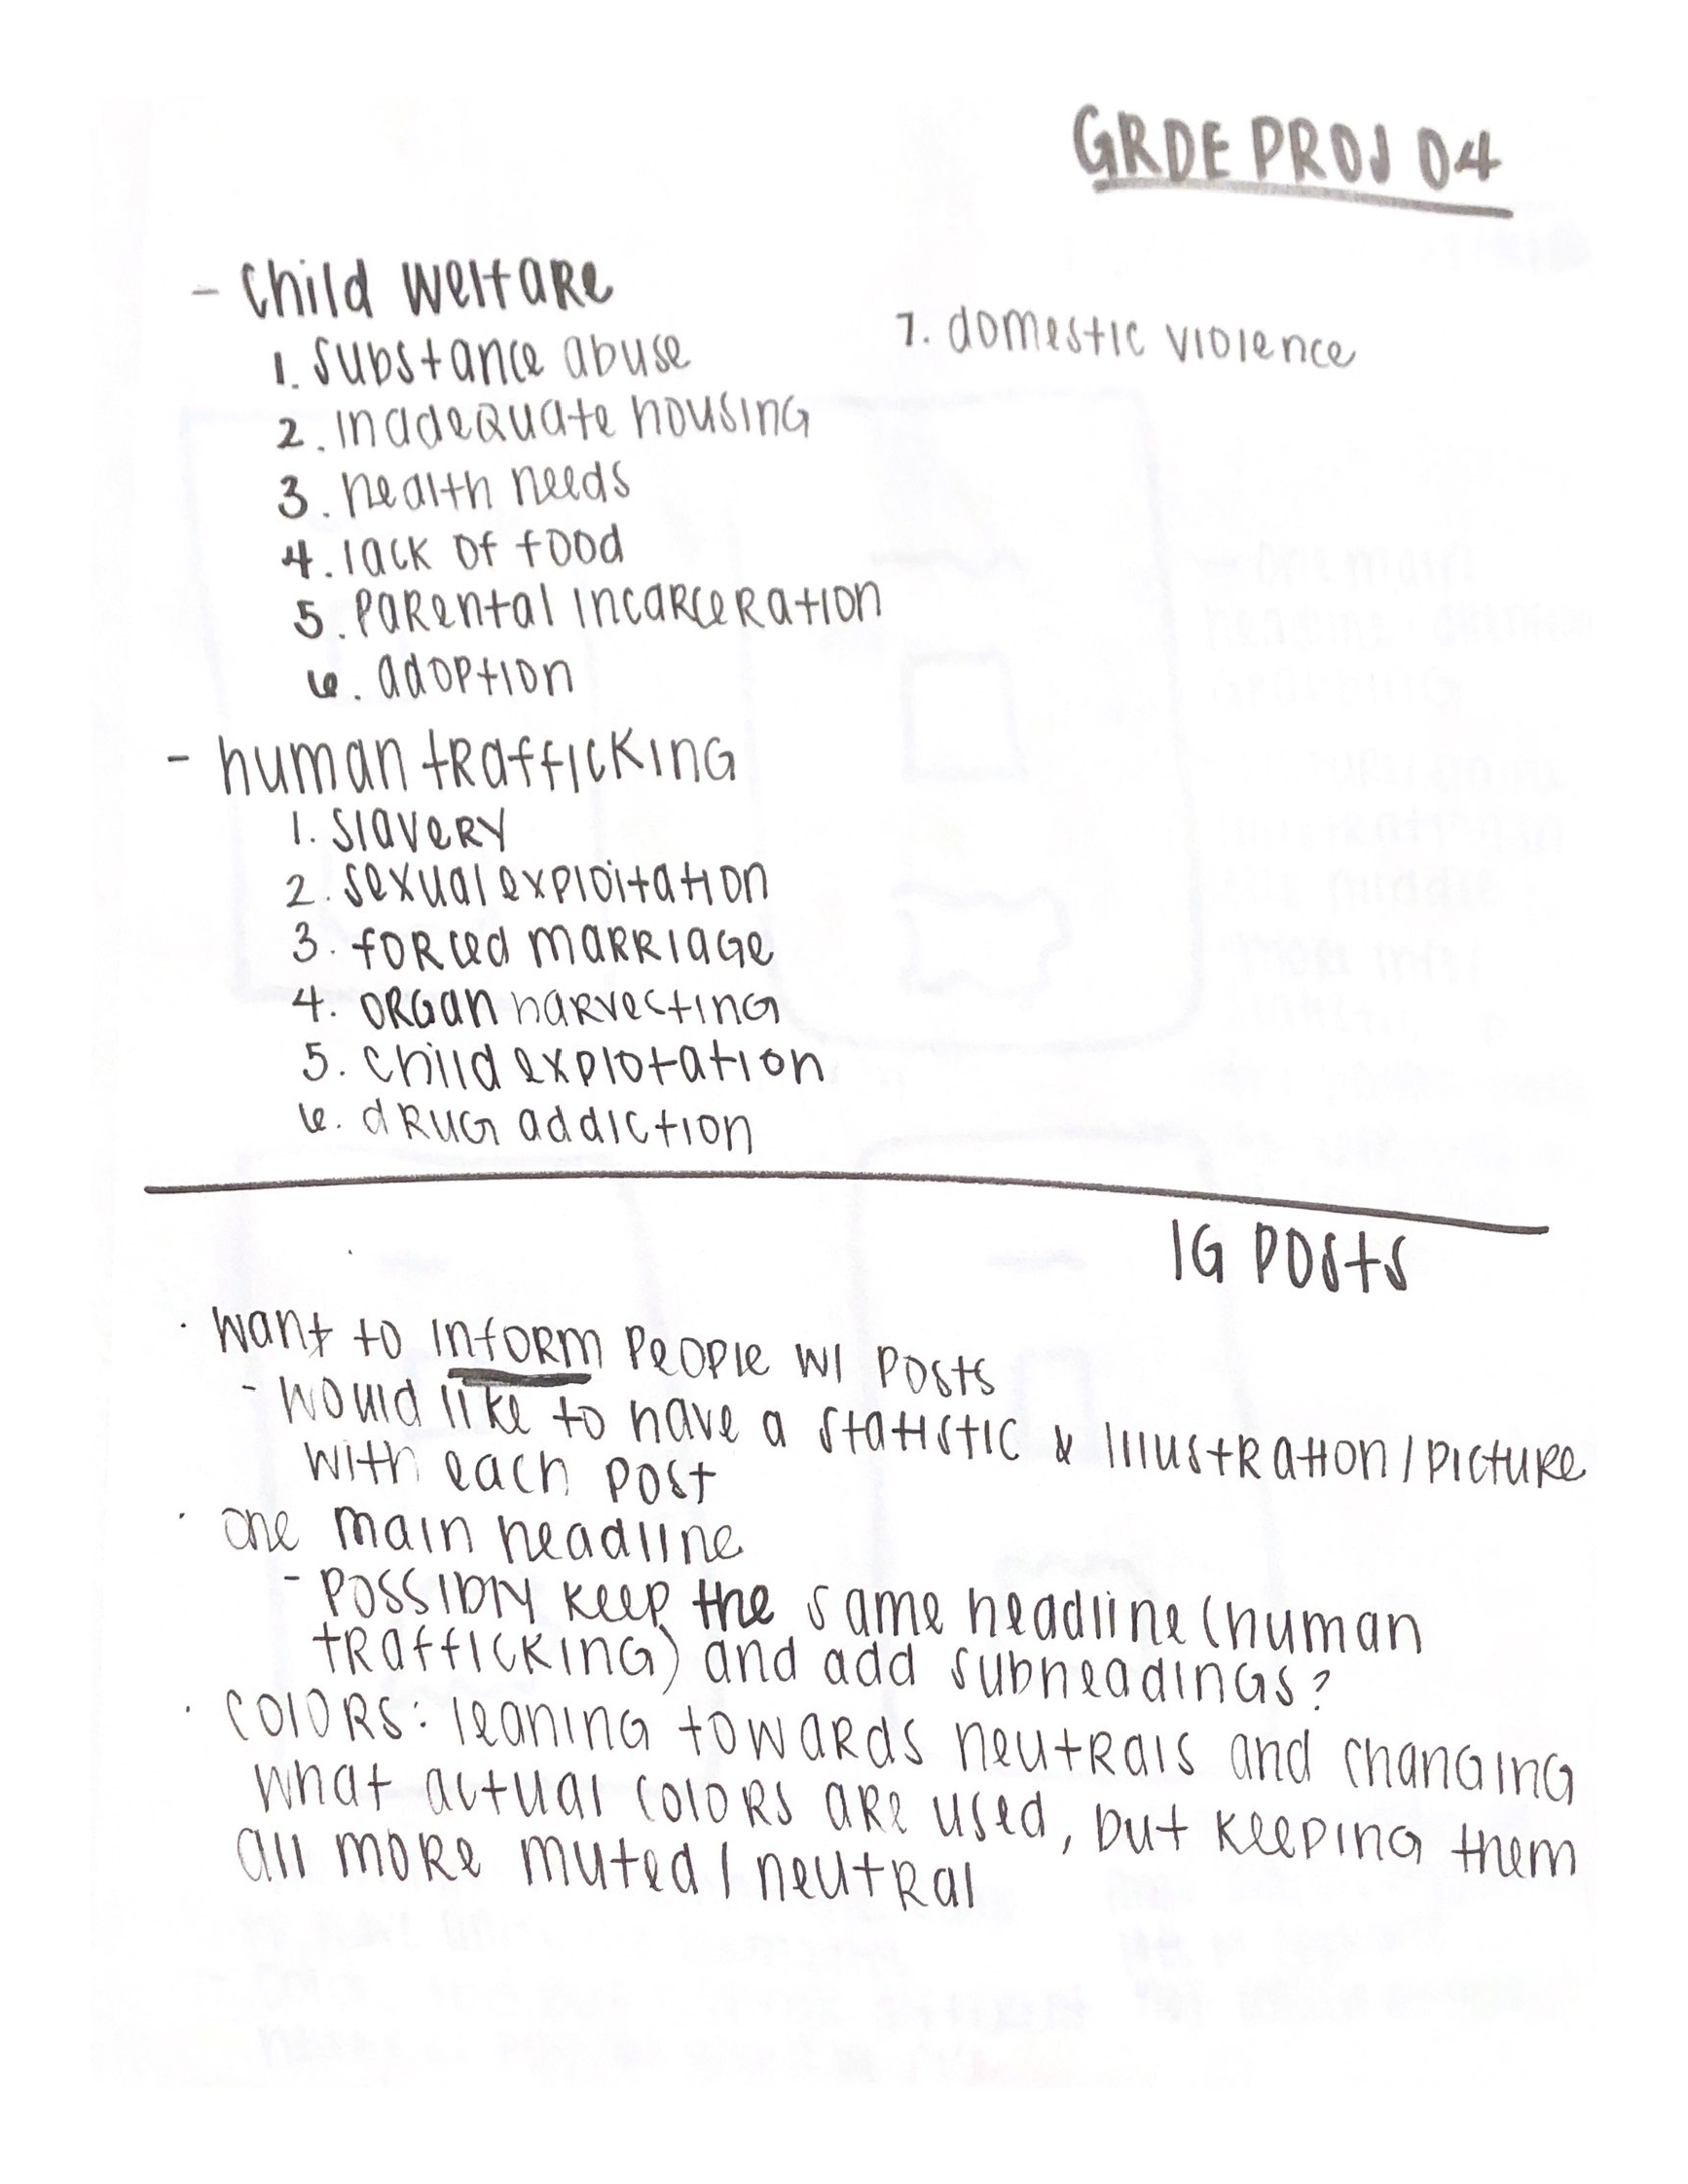 GRDE PROJ 04
- child welfare
1. substance abuse
2. inadequate housing
3. health needs
4. lack of food
5. parental incarceration
6. adoption
7. domestic violence
- human trafficking
1. slavery
2. sexual exploitation
3. forced marriage
4. organ harvesting
5. child explotation
6. drug addiction
IG POSTS
· want to inform people w/ posts
- would like to have a statistic & illustration/picture
with each post
· one main headline
- possibly keep the same headline (human
trafficking) and add subheadings?
· colors: leaning towards neutrals and changing
what actual colors are used, but keeping them
all more muted/neutral